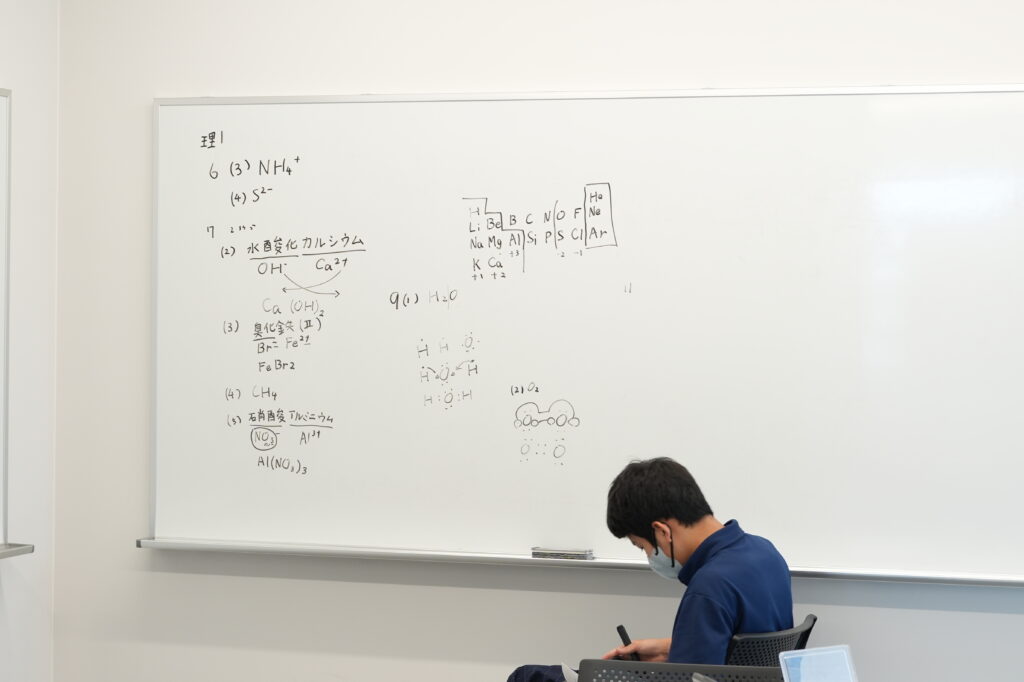 理1
6 (3) NH₄⁺
(4) S²⁻
7
(2) 水酸化カルシウム
OH⁻ Ca²⁺
Ca (OH)₂
(3) 臭化鉄(II)
Br⁻ Fe²⁺
FeBr2
(4) CH₄
(5) 石肖酸アルミニウム
NO₃⁻ Al³⁺
Al(NO₃)₃
H He
Li Be B C N O F Ne
Na Mg Al Si P S Cl Ar
+3 -2 -1
K Ca
+1 +2
9(1) H₂O
H H O
H O H
H:O:H
(2) O₂
O O
O :: O